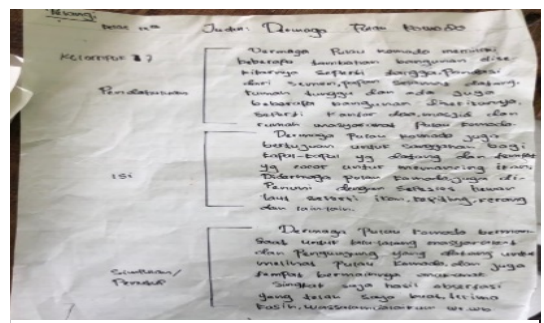 Judul: Dermaga Pulau Komodo
Kelompok 7
Dermaga Pulau Komodo memiliki
beberapa tambahan bangunan dise
kitarnya seperti tangga, Pondasi
dari semen, papan selamat datang,
rumah tunggu dan ada juga
beberapa bangunan disekitarnya,
seperti kantor desa, masjid dan
rumah masyarakat Pulau Komodo.
Pendahuluan
Dermaga Pulau Komodo juga
bertujuan untuk sanggahan bagi
kapal-kapal yg datang dan tempat
yg cocok untuk memancing ikan.
Didermaga pulau Komodo juga di-
Penuhi dengan sekesies hewan
laut seperti ikan, kepiting, kerang
dan lain-lain.
Isi
Dermaga Pulau Komodo berman
faat untuk lalu-lalang masyarakat
dan Pengunjung yang datang untuk
melihat Pulau Komodo, dan juga
tempat bermainnya anak-anak.
Singkat saja hasil observasi
yang telah saya buat, terima
kasih, wassalamualaikum wr.wb
Simpulan/
Penutup